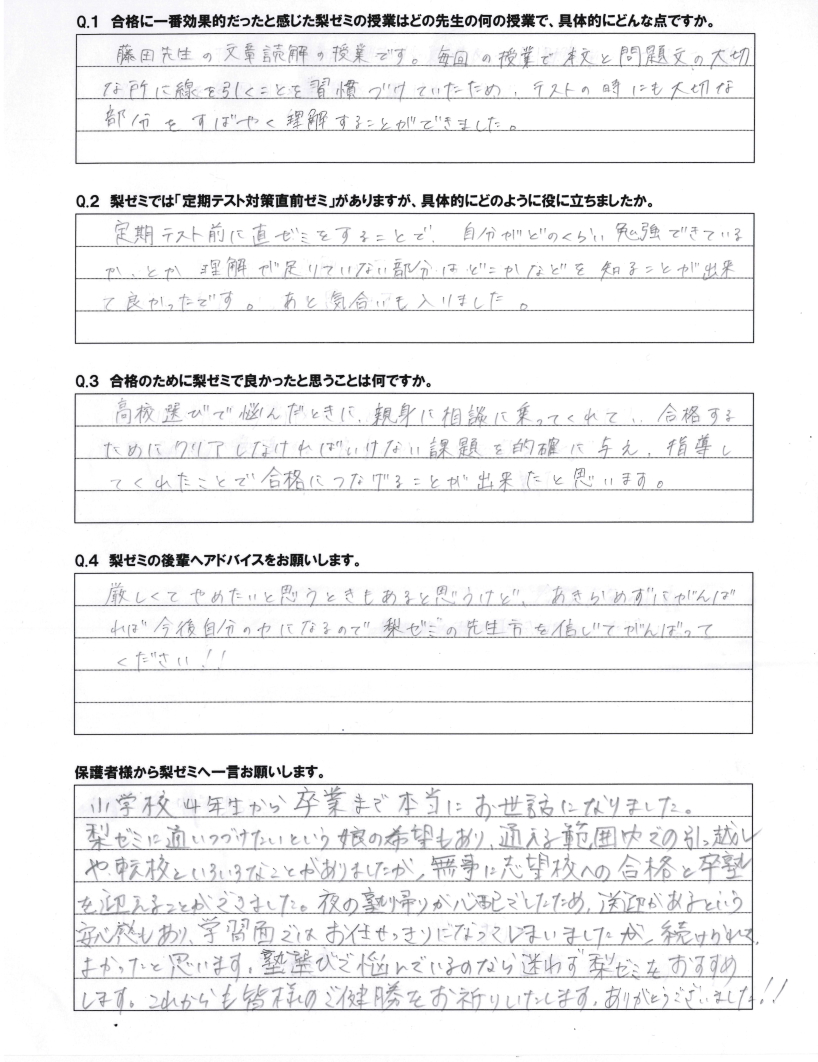 Q.1 合格に一番効果的だったと感じた梨ゼミの授業はどの先生の何の授業で、具体的にどんな点ですか。
藤田先生の文章読解の授業です。毎回の授業で本文と問題文の大切
な所に線を引くことを習慣づけていたため、テストの時にも大切な
部分をすばやく理解することができました。
Q.2 梨ゼミでは「定期テスト対策直前ゼミ」がありますが、具体的にどのように役に立ちましたか。
定期テスト前に直ゼミをすることで、自分がどのくらい勉強できている
か、とか理解が足りていない部分はどこかなどを知ることが出来
て良かったです。あと気合いも入りました。
Q.3 合格のために梨ゼミで良かったと思うことは何ですか。
高校選びで悩んだときに、親身に相談に乗ってくれて、合格する
ためにクリアしなければいけない課題を的確に与え、指導し
てくれたことで合格につなげることが出来たと思います。
Q.4 梨ゼミの後輩へアドバイスをお願いします。
厳しくてやめたいと思うときもあると思うけど、あきらめずにがんば
れば今後自分の力になるので梨ゼミの先生方を信じてがんばって
ください!!
保護者様から梨ゼミへ一言お願いします。
小学校4年生から卒業まで本当にお世話になりました。
梨ゼミに通いつづけたいという娘の希望もあり、通える範囲内での引っ越し
や転校といろいろなことがありましたが、無事に志望校への合格と卒塾
を迎えることができました。夜の塾帰りが心配でしたため、送迎があるという
安心感もあり、学習面ではお任せっきりになってしまいましたが、続けられて、
よかったと思います。塾選びで悩んでいるのなら迷わず梨ゼミをおすすめ
します。これからも皆様のご健勝をお祈りいたします。ありがとうございました!!